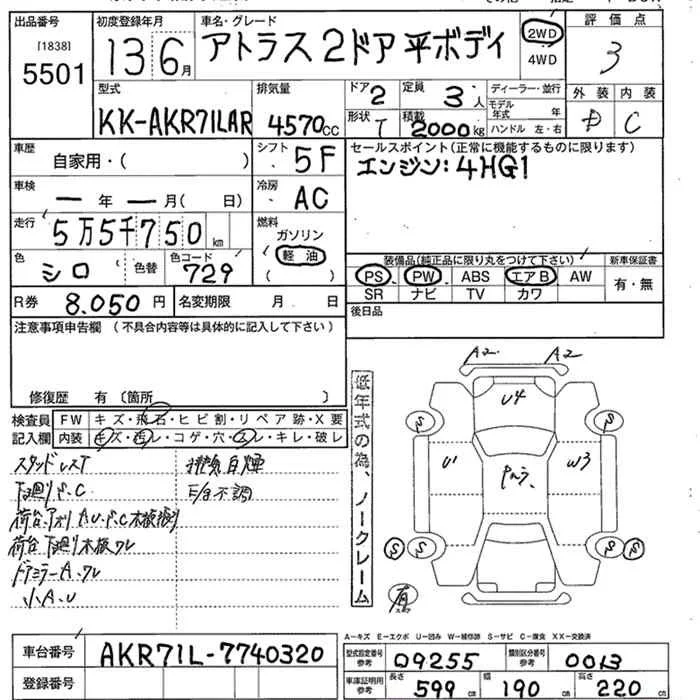 出品番号 初度登録年月 車名・グレード 評価点
[1838]
5501 13 6月 アトラス 2ドア 平ボディ 2WD 4WD 3
型式 排気量 ドア 2 定員 3人 ディーラー・並行 外装 内装
KK-AKR71LAR 4570cc 形状 T 積載 2000kg モデル年式 年 ハンドル 左・右 D C
車歴 自家用・( ) シフト 5F セールスポイント(正常に機能するものに限ります)
エンジン:4HG1
車検 ー年ー月( 日) 冷房 AC
走行 5万5千750km 燃料 ガソリン 軽油 ( )
色 シロ 色替 色コード 729
装備品(純正品に限り丸をつけて下さい) 新車保証書
PS PW ABS エアB AW 有・無
SR ナビ TV カワ
R券 8.050円 名変期限 月 日 後日品
注意事項申告欄 (不具合内容等は具体的に記入して下さい)
修復歴 有 〔箇所 〕
検査員 FW キズ・飛石・ヒビ割・リペア跡・X要
記入欄 内装 キズ・汚レ・コゲ・穴・スレ・キレ・破レ
スタッドレスT
下廻りP、C E/g不調
荷台下廻り木板ワレ
ドアミラーA、ワレ
小A、U
低年式の為、ノークレーム
A2 A2
U4
S S
U1 W3
S S S S
有
A-キズ E-エクボ U-凹み W-補修跡 S-サビ C-腐食 XX-交換済
車台番号 AKR71L-7740320
登録番号
型式指定番号 参考 09255 類別区分番号 参考 0013
車庫証明用 参考 長さ 599cm 幅 190cm 高さ 220cm